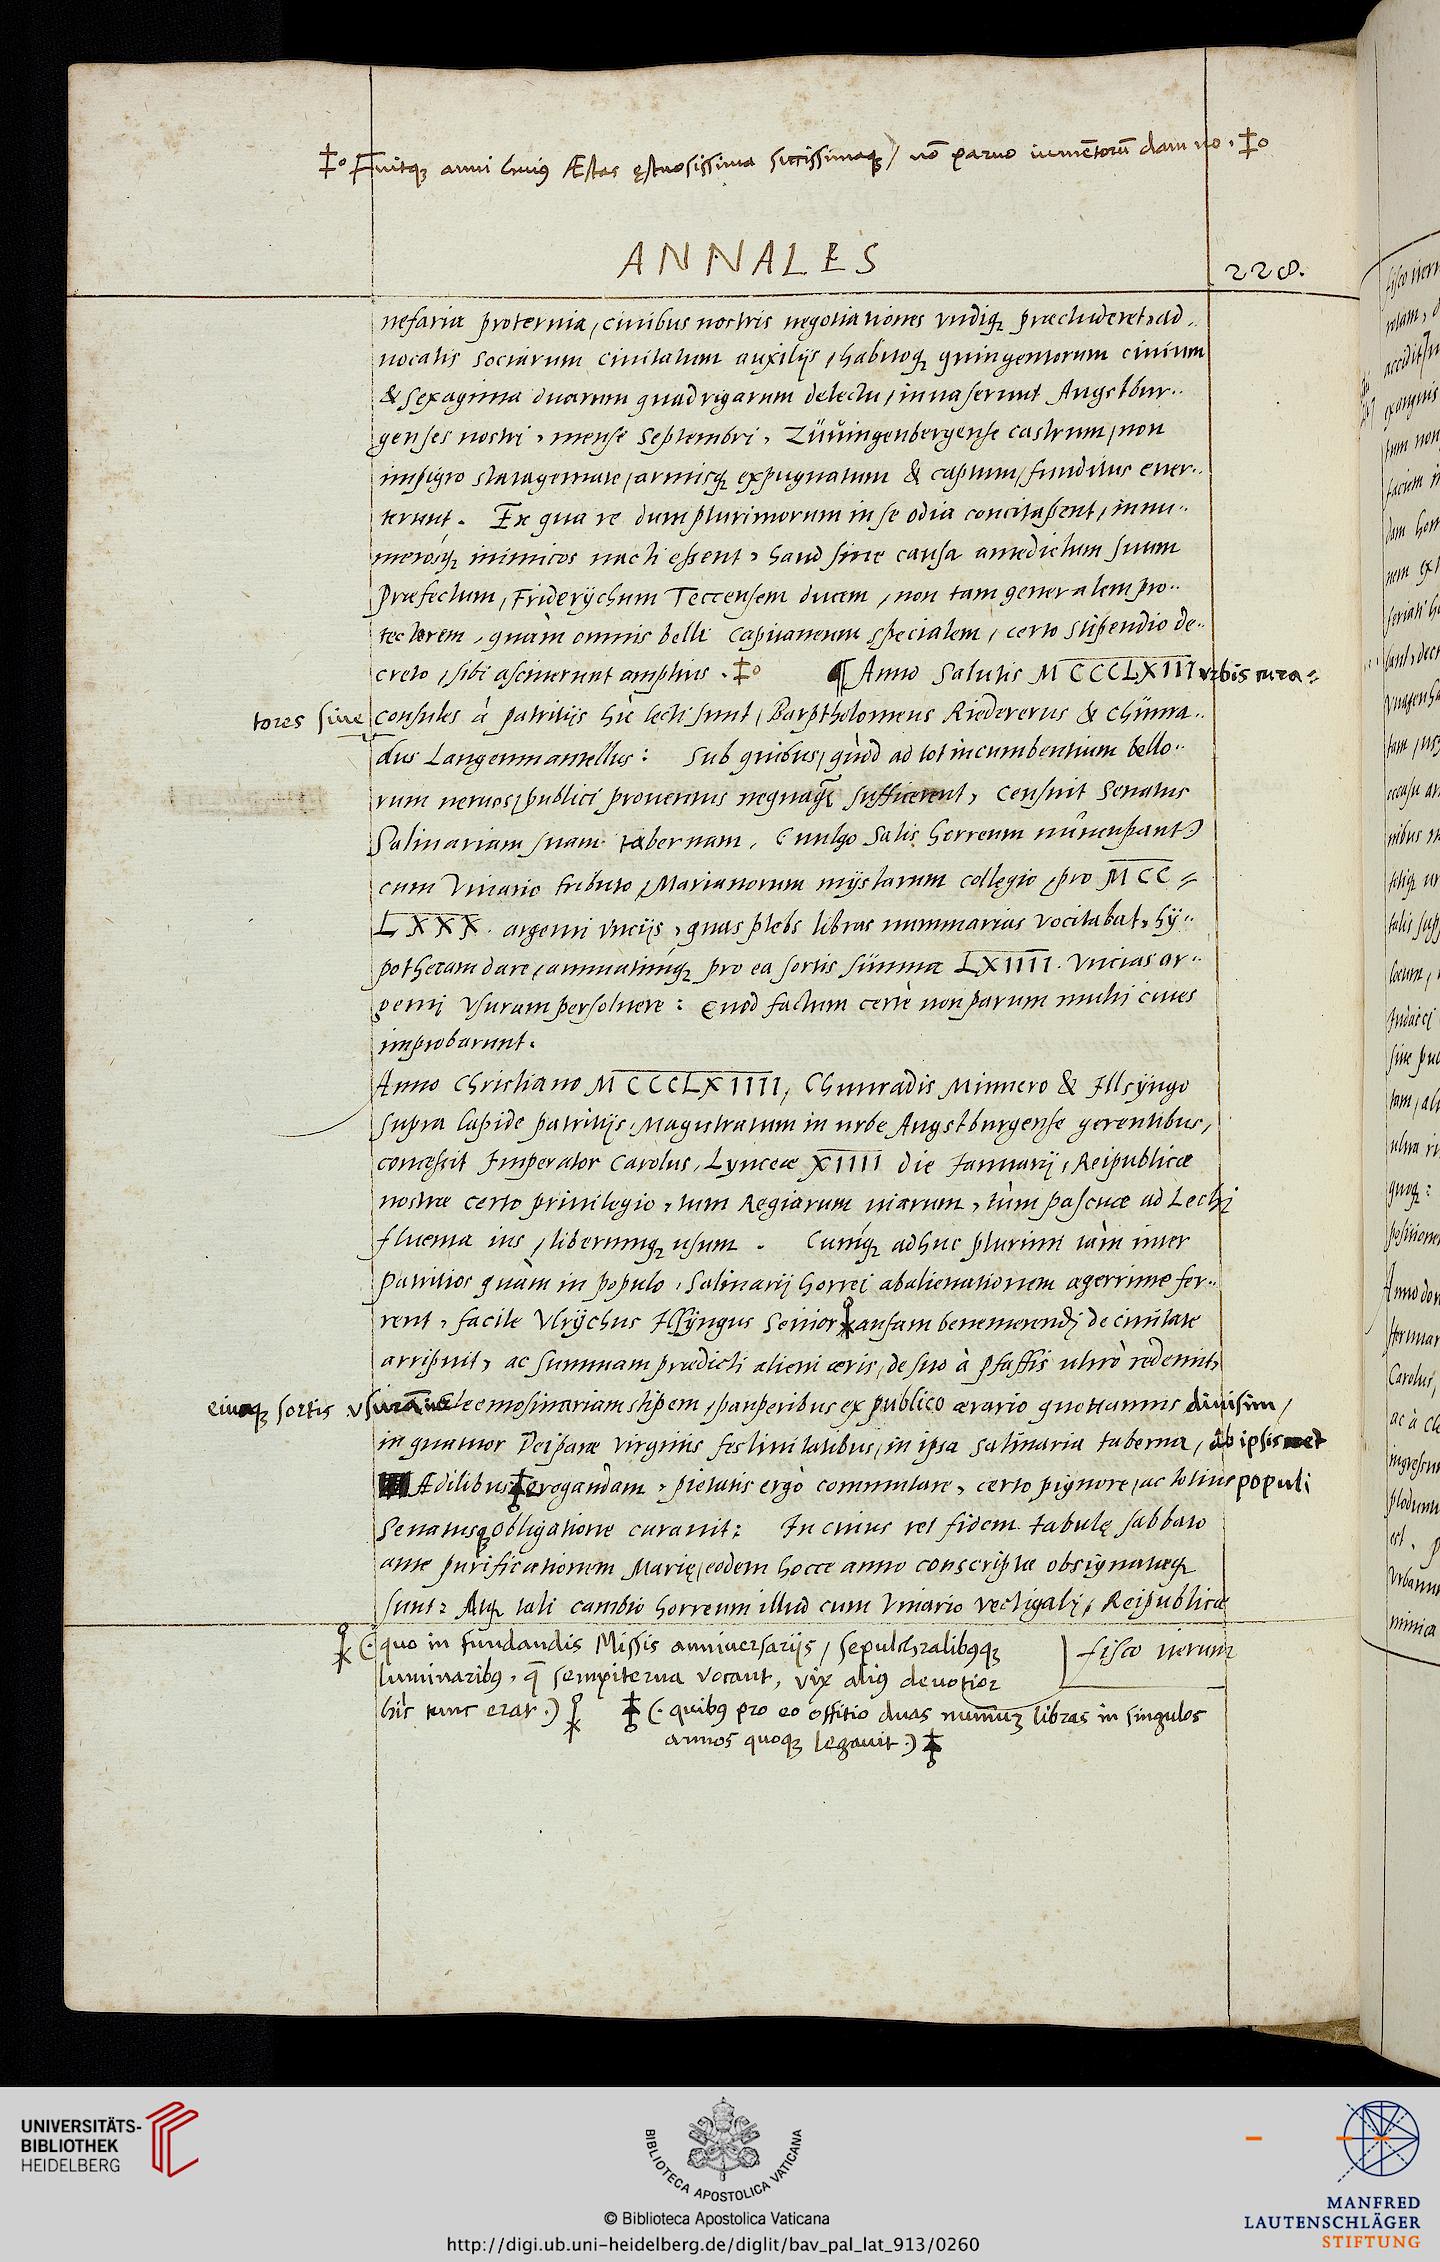 ‡o Fuitq; anni huiꝰ Æstas ęstuosissima siccissimaq;/ nō paruo iumētorū damno. ‡o
ANNALES
228.
nefaria proteruia, ciuibus nostris negotiationes vndiq; præcluderet, ad..
uocatis sociarum ciuitatum auxilijs, habitoq; quingentorum ciuium
& sexaginta duarum quadrigarum delectu, inuaserunt Augstbur..
genses nostri, mense Septembri, Züuingenbergense castrum, non
impigro stratagemate, armisq; expugnatum & captum, funditus euer..
terunt. Ex qua re dum plurimorum in se odia concitaßent, innu..
merosq; inimicos nacti eßent, haud sine causa antedictum suum
Præfectum, Friderÿchum Teccensem ducem, non tam generalem pro..
tectorem, quàm omnis belli capitaneum specialem, certo stipendio de..
creto, sibi asciuerunt amplius. ‡o ¶ Anno Salutis MCCCLXIII vrbis cura=
tores siue consules à patritijs hîc lecti sunt, Barptholomeus Riedererus & Chŭnra..
dus Langenmantellus: Sub quibus, quòd ad tot incumbentium bello..
rum neruos, publici prouentus nequaq̃ sufficerent, censuit Senatus
Salinariam suam tabernam, (uulgo Salis horreum nuncupant)
cum Vinario tributo, Marianorum mÿstarum collegio, pro MCC=
LXXX. argenti vncijs, quas plebs libras nummarias vocitabat, hÿ..
pothecam dare, annuatimq; pro ea sortis summa LXIIII. vncias ar..
genti vsuram persoluere: Quod factum certè non parum multi ciues
improbarunt.
Anno Christiano MCCCLXIIII, Chunradis Minnero & Illsÿngo
supra lapide patritijs, Magistratum in urbe Augstburgense gerentibus,
conceßit Imperator Carolus, Lynceæ XIIII die Januarij, Reipublicæ
nostræ certo priuilegio, tum Regiarum uiarum, tùm pascuæ ad Lechi
fluenta ius, liberumq; usum. Cumq; adhuc plurimi tàm inter
Patritios quàm in populo, Salinarij horrei abalienationem ægerrime fer..
rent, facile Vlrÿchus Ilsÿngus Senior ansam benemerendi de ciuitate
arripuit, ac summam prædicti alieni æris, de suo à pfaffis ultrò redemit,
eiusq; sortis vsurā in Eleemosinariam stipem, pauperibus ex publico ærario quotannis diuisim,
in quatuor Deiparæ virginis festiuitatibus, in ipsa salinaria taberna, ab ipsismet
Ædilibus erogandam, pietatis ergò commutare, certo pignore, ac totius populi
Senatusq; obligatione curauit: In cuius rei fidem tabulę sabbato
ante purificationem Marię, eodem hocce anno conscriptæ obsignatæq;
sunt: Atq; tali cambio horreum illud cum Vinario vectigali, Reipublicæ
fisco iterum
(. quo in fundandis Missis anniuersarijs, sepulchralibꝰq;
luminaribꝰ, q̄ sempiterna vocant, vix aliꝰ deuotior
hîc tunc erat .)
(. quibꝰ pro eo offitio duas nummū libras in singulos
annos quoq; legauit .)
UNIVERSITÄTS-
BIBLIOTHEK
HEIDELBERG
BIBLIOTECA APOSTOLICA VATICANA
© Biblioteca Apostolica Vaticana
http://digi.ub.uni-heidelberg.de/diglit/bav_pal_lat_913/0260
MANFRED
LAUTENSCHLÄGER
STIFTUNG